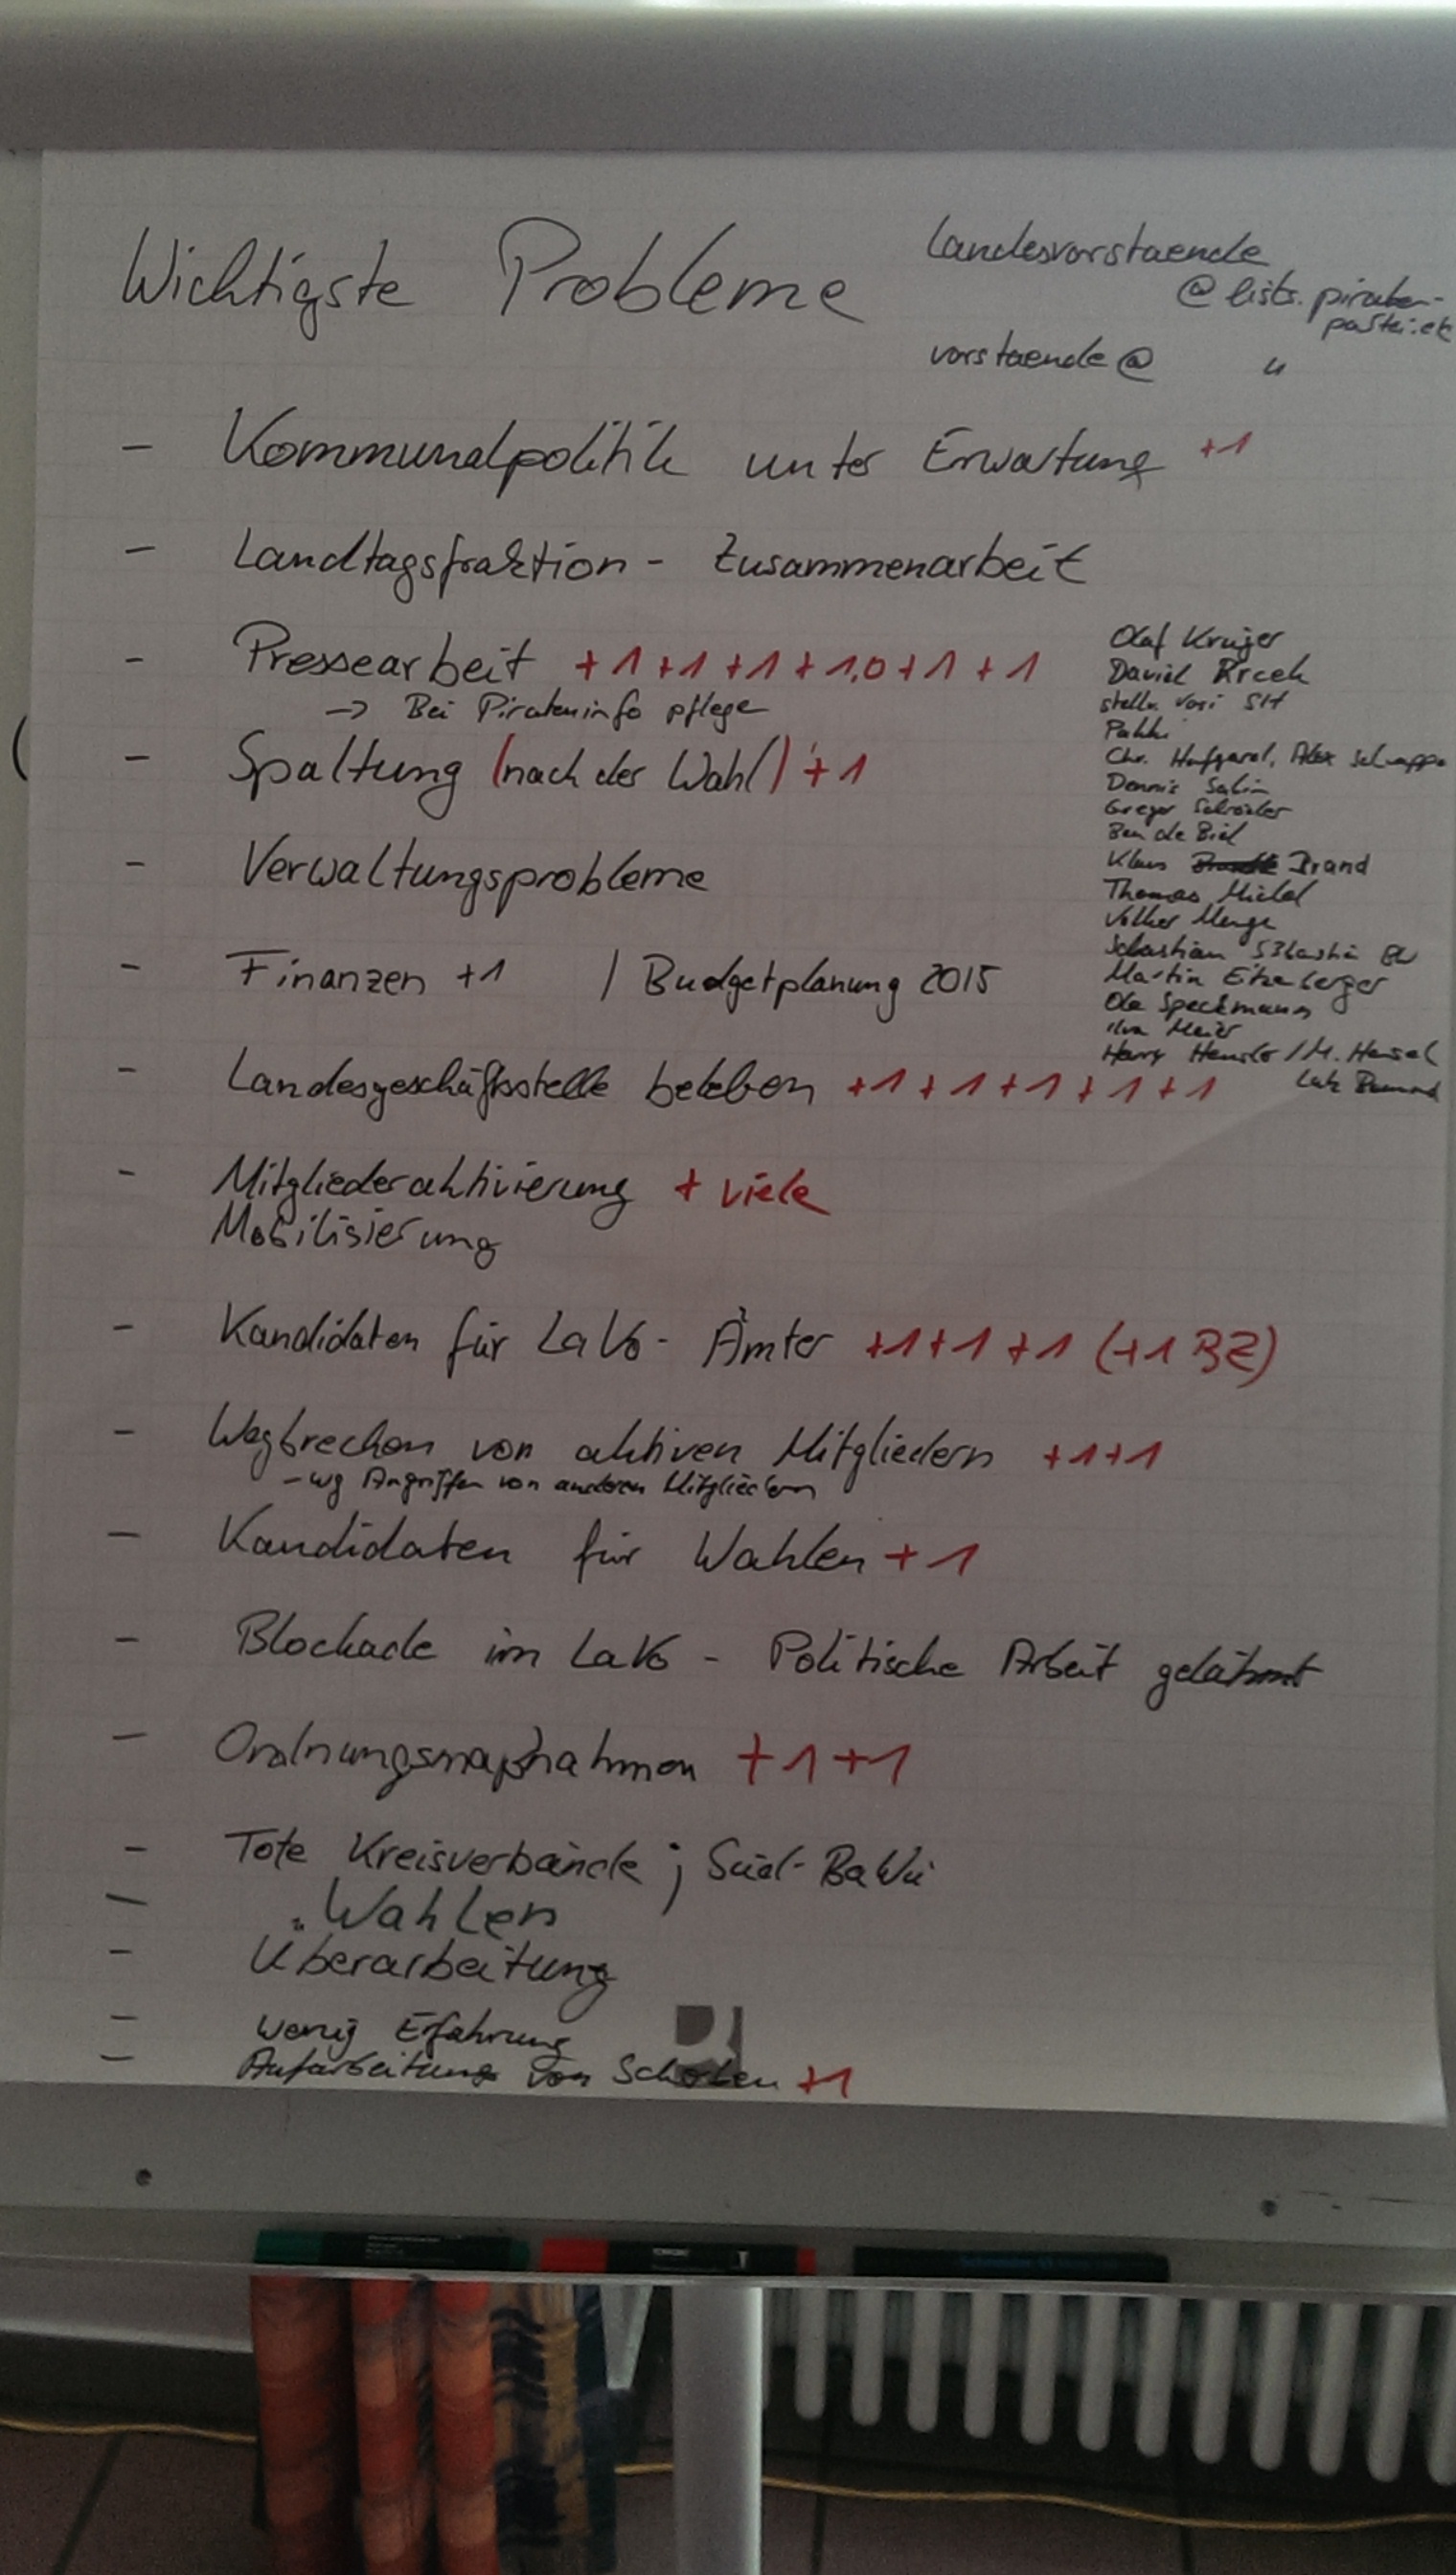 Wichtigste Probleme
Landesvorstaende
@lists.piraten-
partei.de
vorstaende@ "
- Kommunalpolitik unter Erwartung +1
- Landtagsfraktion - Zusammenarbeit
- Pressearbeit +1+1+1+1,0+1+1
-> Bei Pirateninfo pflege
- Spaltung (nach der Wahl) +1
- Verwaltungsprobleme
- Finanzen +1 / Budgetplanung 2015
- Landesgeschäftsstelle beleben +1+1+1+1+1
- Mitgliederaktivierung + viele
Mobilisierung
- Kandidaten für LaVo-Ämter +1+1+1 (+1 BZ)
- Wegbrechen von aktiven Mitgliedern +1+1
- wg Angriffen von anderen Mitgliedern
- Kandidaten für Wahlen +1
- Blockade im LaVo - Politische Arbeit gelähmt
- Ordnungsmaßnahmen +1+1
- Tote Kreisverbände ; Süd-BaWü
- Wahlen
- Überarbeitung
- wenig Erfahrung
- Aufarbeitung von +1
Olaf Krüger
David Krcek
stellv. Vorsi SH
Chr. Hufgard, Alex
Dennis
Gregor Schröder
Ben de Biel
Klaus Brand
Thomas Michel
Volker Menge
Sebastian
Martin Eitzenberger
Ole Speckmann
Meier
Harry Hensler / M. Hensel
Lutz